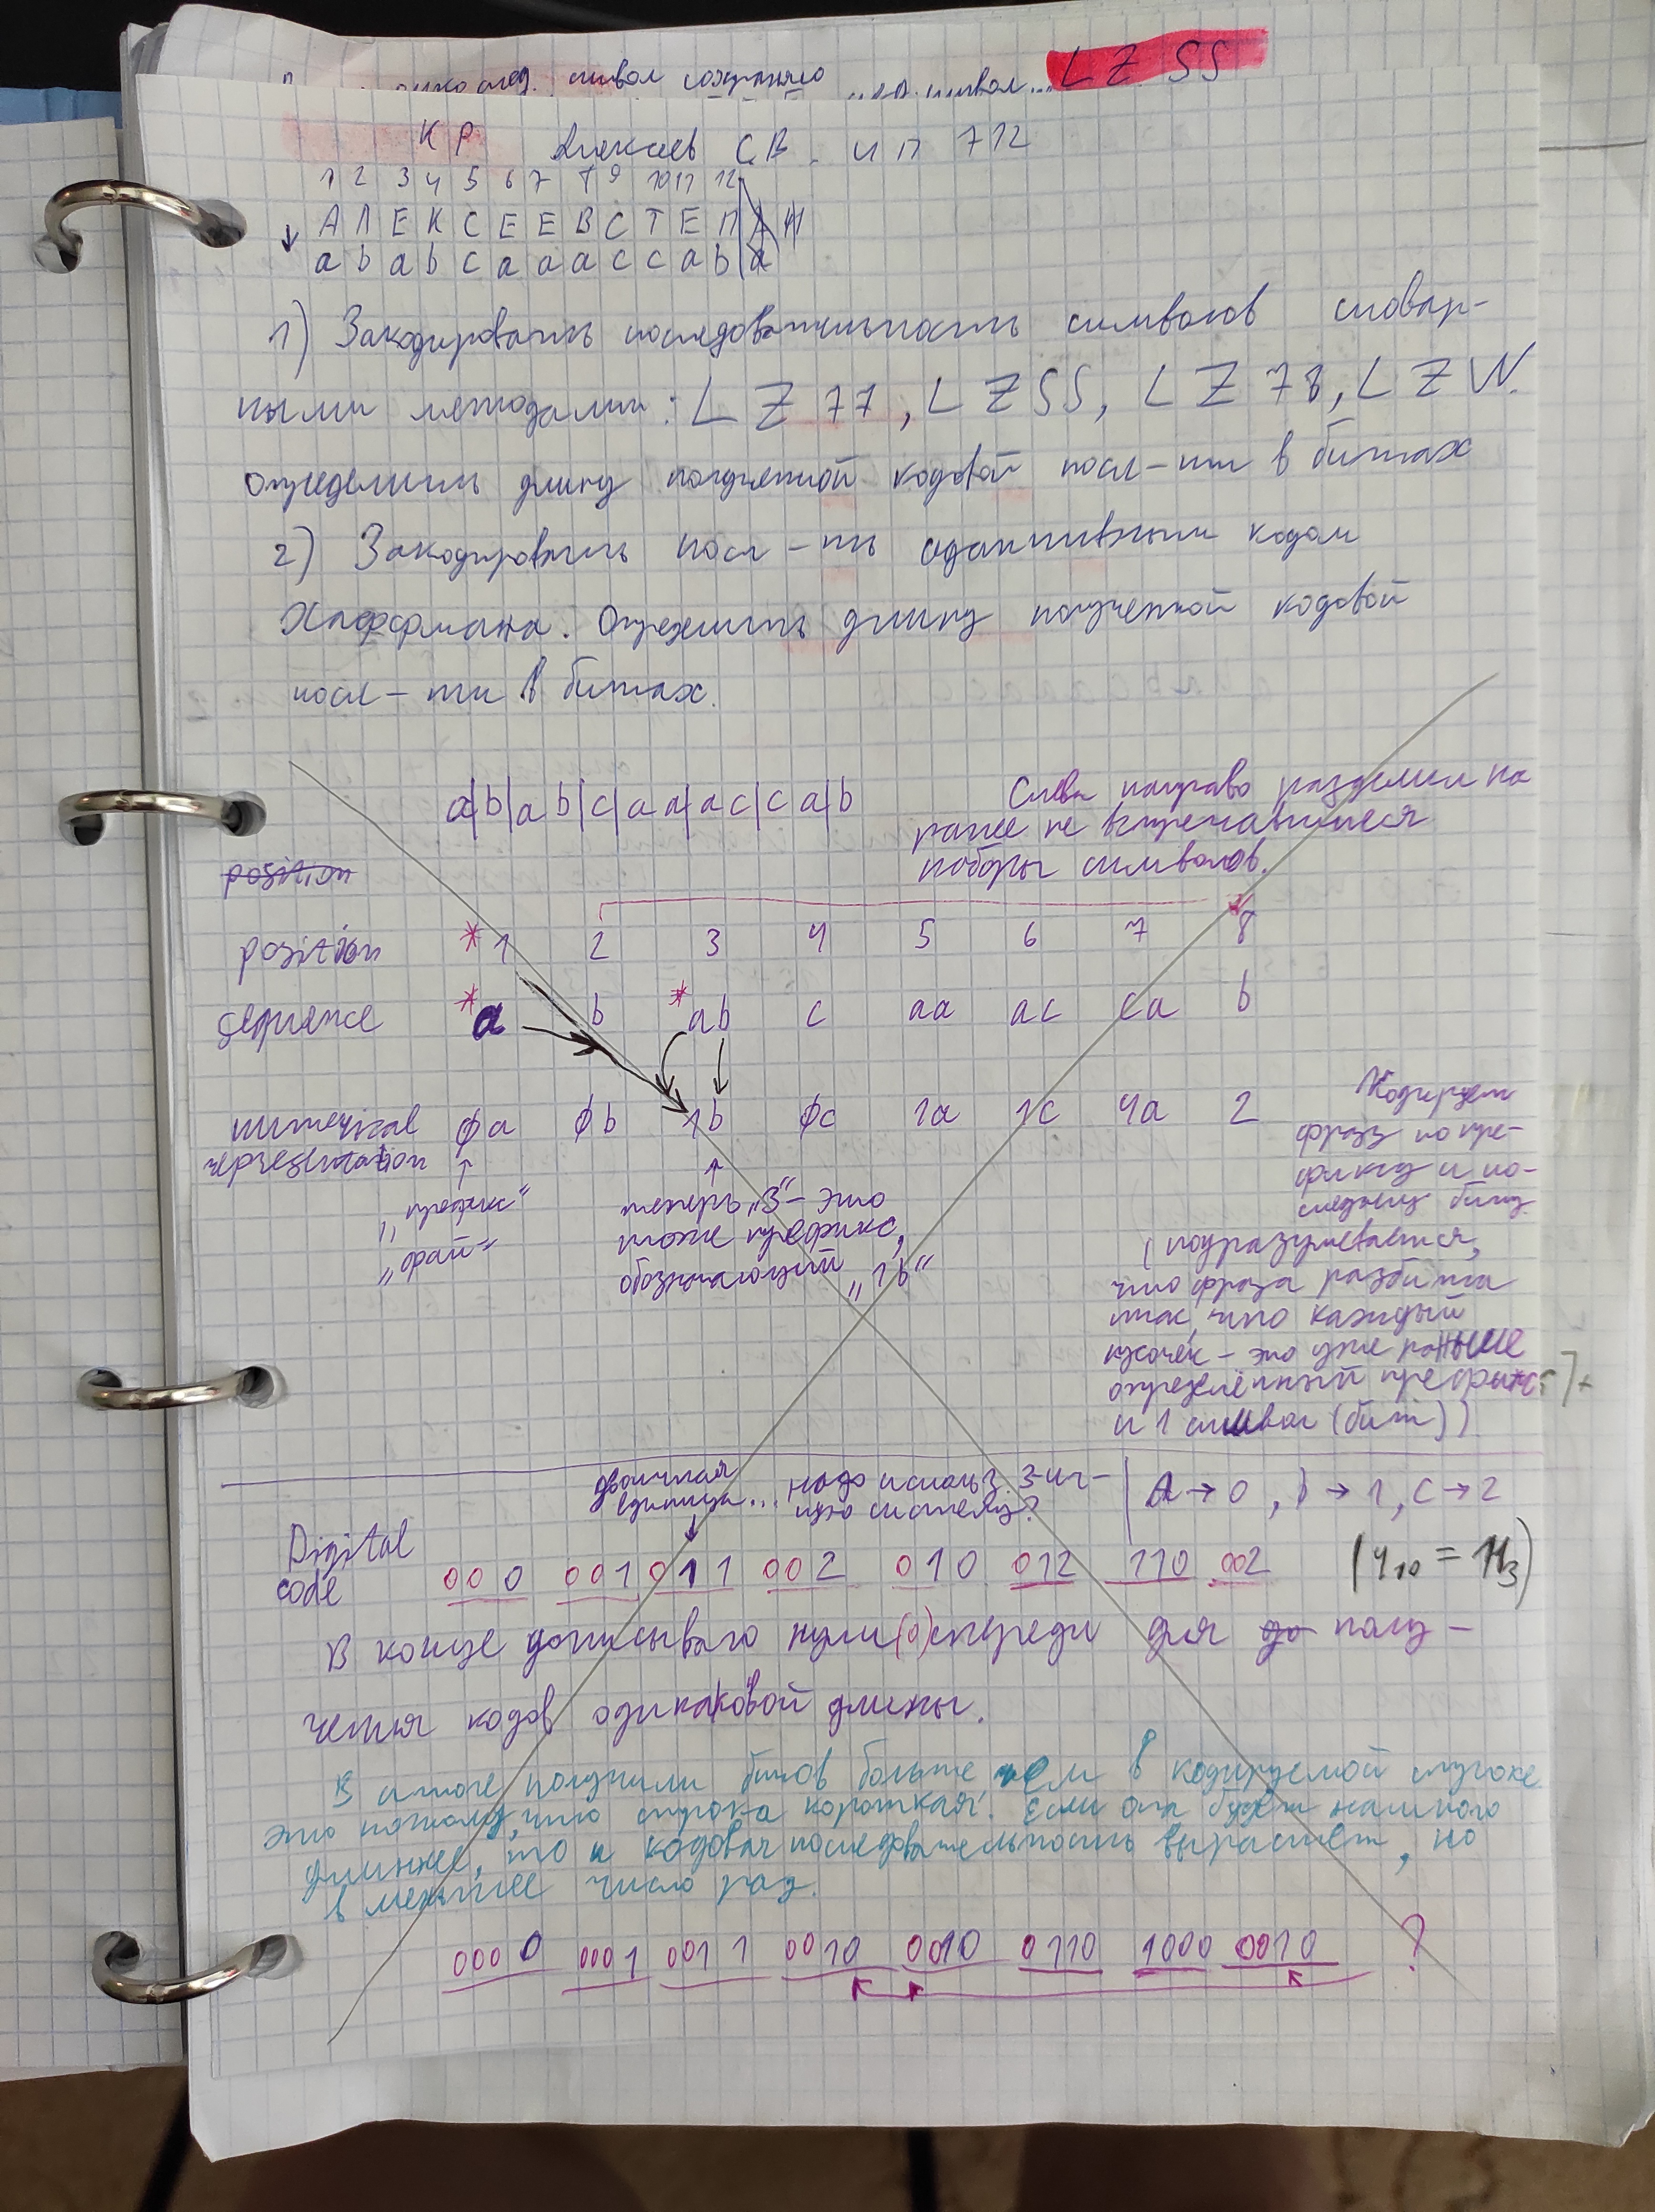 символ сохраняю символ... LZ SS
КР Алексеев С.В. ИП 712
1 2 3 4 5 6 7 8 9 10 11 12
А Л Е К С Е Е В С Т Е П А Н
a b a b c a a a c c a b a
1) Закодировать последовательность символов словар-
ными методами: LZ77, LZSS, LZ78, LZW.
Определить длину полученной кодовой посл-ти в битах
2) Закодировать посл-ть адаптивным кодом
Хаффмана. Определить длину полученной кодовой
посл-ти в битах.
a|b|a b|c|a a|a c|c a|b
Слева направо разделил на
ранее не встречавшиеся
наборы символов.
position
position *1 2 3 4 5 6 7 8
sequence *a b *ab c aa ac ca b
numerical representation 0a 0b 1b 0c 1a 1c 4a 2
Кодируем
фразу по пре-
фиксу и по-
следнему биту
(подразумевается,
что фраза разбита
так, что каждый
кусочек - это уже раньше
определённый префикс
и 1 символ (бит))
"префикс"
теперь "3" - это
тоже префикс,
обозначающий "1b"
двоичная
единица... надо использ. 3-ич-
ную систему?
A→0, b→1, c→2
Digital code 000 001 011 002 010 012 110 002
(4₁₀ = 11₃)
В конце дописываю нули (0) спереди для до полу-
чения кодов одинаковой длины.
В итоге получили битов больше чем в кодируемой строке
это потому, что строка короткая. Если она будет намного
длиннее, то и кодовая последовательность вырастет, но
в меньшее число раз.
0000 0001 0011 0010 0010 0110 1000 0010 ?